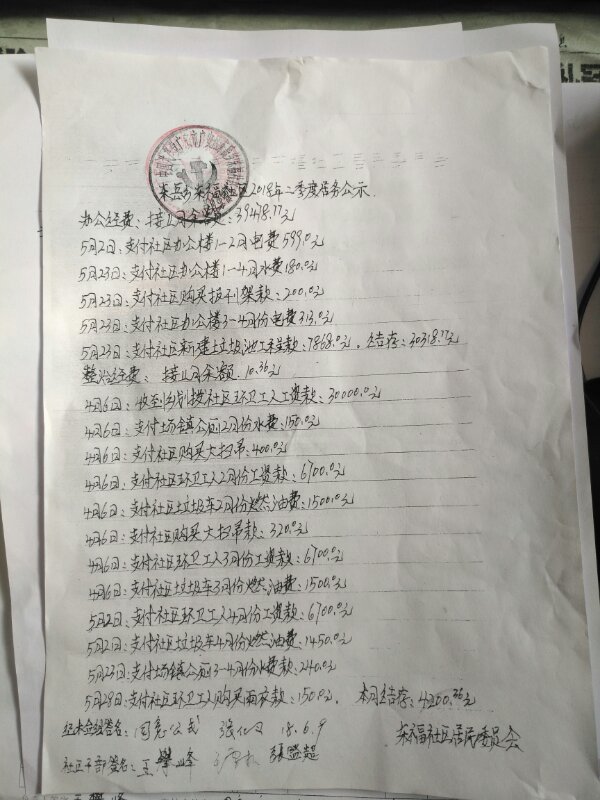 来福社区2018年二季度居务公示
办公经费：接上月余额：39478.77元
5月2日：支付社区办公楼1-2月电费599.0元
5月23日：支付社区办公楼1-4月水费180.0元
5月23日：支付社区购买报刊架款：200.0元
5月23日：支付社区办公楼3-4月份电费313.0元
5月23日：支付社区新建垃圾池工程款：7868.0元。结存：30318.77元
整治经费：接上月余额.10.36元
4月6日：收到划拨社区环卫工人工资款：30000.0元
4月6日：支付场镇公厕2月份水费：150.0元
4月6日：支付社区购买大扫帚：400.0元
4月6日：支付社区环卫工人2月份工资款：6700.0元
4月6日：支付社区垃圾车2月份燃油费：1500.0元
4月6日：支付社区购买大扫帚款：320.0元
4月6日：支付社区环卫工人3月份工资款：6700.0元
4月6日：支付社区垃圾车3月份燃油费：1500.0元
5月2日：支付社区环卫工人4月份工资款：6700.0元
5月2日：支付社区垃圾车4月份燃油费：1450.0元
5月23日：支付场镇公厕3-4月份水费款：240.0元
5月29日：支付社区环卫工人购买雨衣款：150.0元。 本月结存：4200.36元
签名：同意公示 18.6.9
来福社区居民委员会
社区干部签名：王攀峰 張盛超